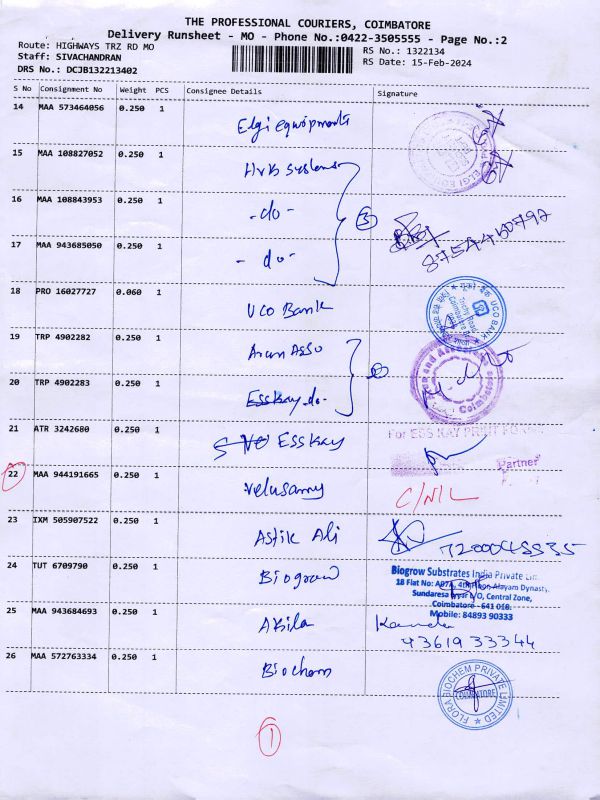 THE PROFESSIONAL COURIERS, COIMBATORE
Delivery Runsheet - MO - Phone No.:0422-3505555 - Page No.:2
Route: HIGHWAYS TRZ RD MO
RS No.: 1322134
Staff: SIVACHANDRAN
RS Date: 15-Feb-2024
DRS No.: DCJB132213402
S No Consignment No Weight PCS Consignee Details Signature
14 MAA 573464056 0.250 1 Elgi equipments
15 MAA 108827052 0.250 1 HVB Systems
16 MAA 108843953 0.250 1 -do-
3
8754450792
17 MAA 943685050 0.250 1 -do-
18 PRO 16027727 0.060 1 UCO Bank
UCO BANK
Trichy Road
Coimbatore
19 TRP 4902282 0.250 1 Arun Asso
2
Coimbatore
20 TRP 4902283 0.250 1 Esskay do-
21 ATR 3242680 0.250 1 ESSKay
For ESS KAY PRINT
Partner
22 MAA 944191665 0.250 1 Velusamy C/NIL
23 IXM 505907522 0.250 1 Astik Ali
7200045535
24 TUT 6709790 0.250 1 Biogrow
Biogrow Substrates India Private
Sundaresa Iyer L/O, Central Zone,
Coimbatore - 641 018.
Mobile: 84893 90333
25 MAA 943684693 0.250 1 Akila
9361933344
26 MAA 572763334 0.250 1 Biochem
FLORA BIOCHEM PRIVATE LIMITED
COIMBATORE
1